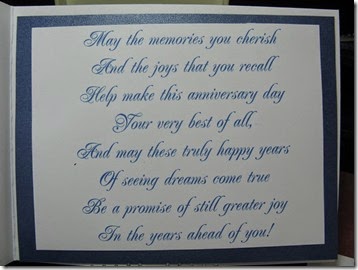 May the memories you cherish
And the joys that you recall
Help make this anniversary day
Your very best of all,
And may these truly happy years
Of seeing dreams come true
Be a promise of still greater joy
In the years ahead of you!